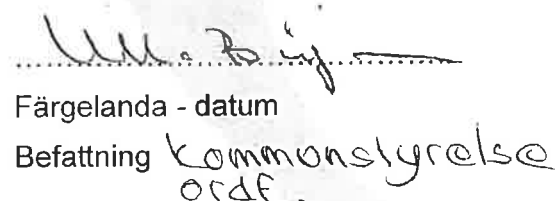 Färgelanda - datum
Befattning Kommunstyrelse
ordf.